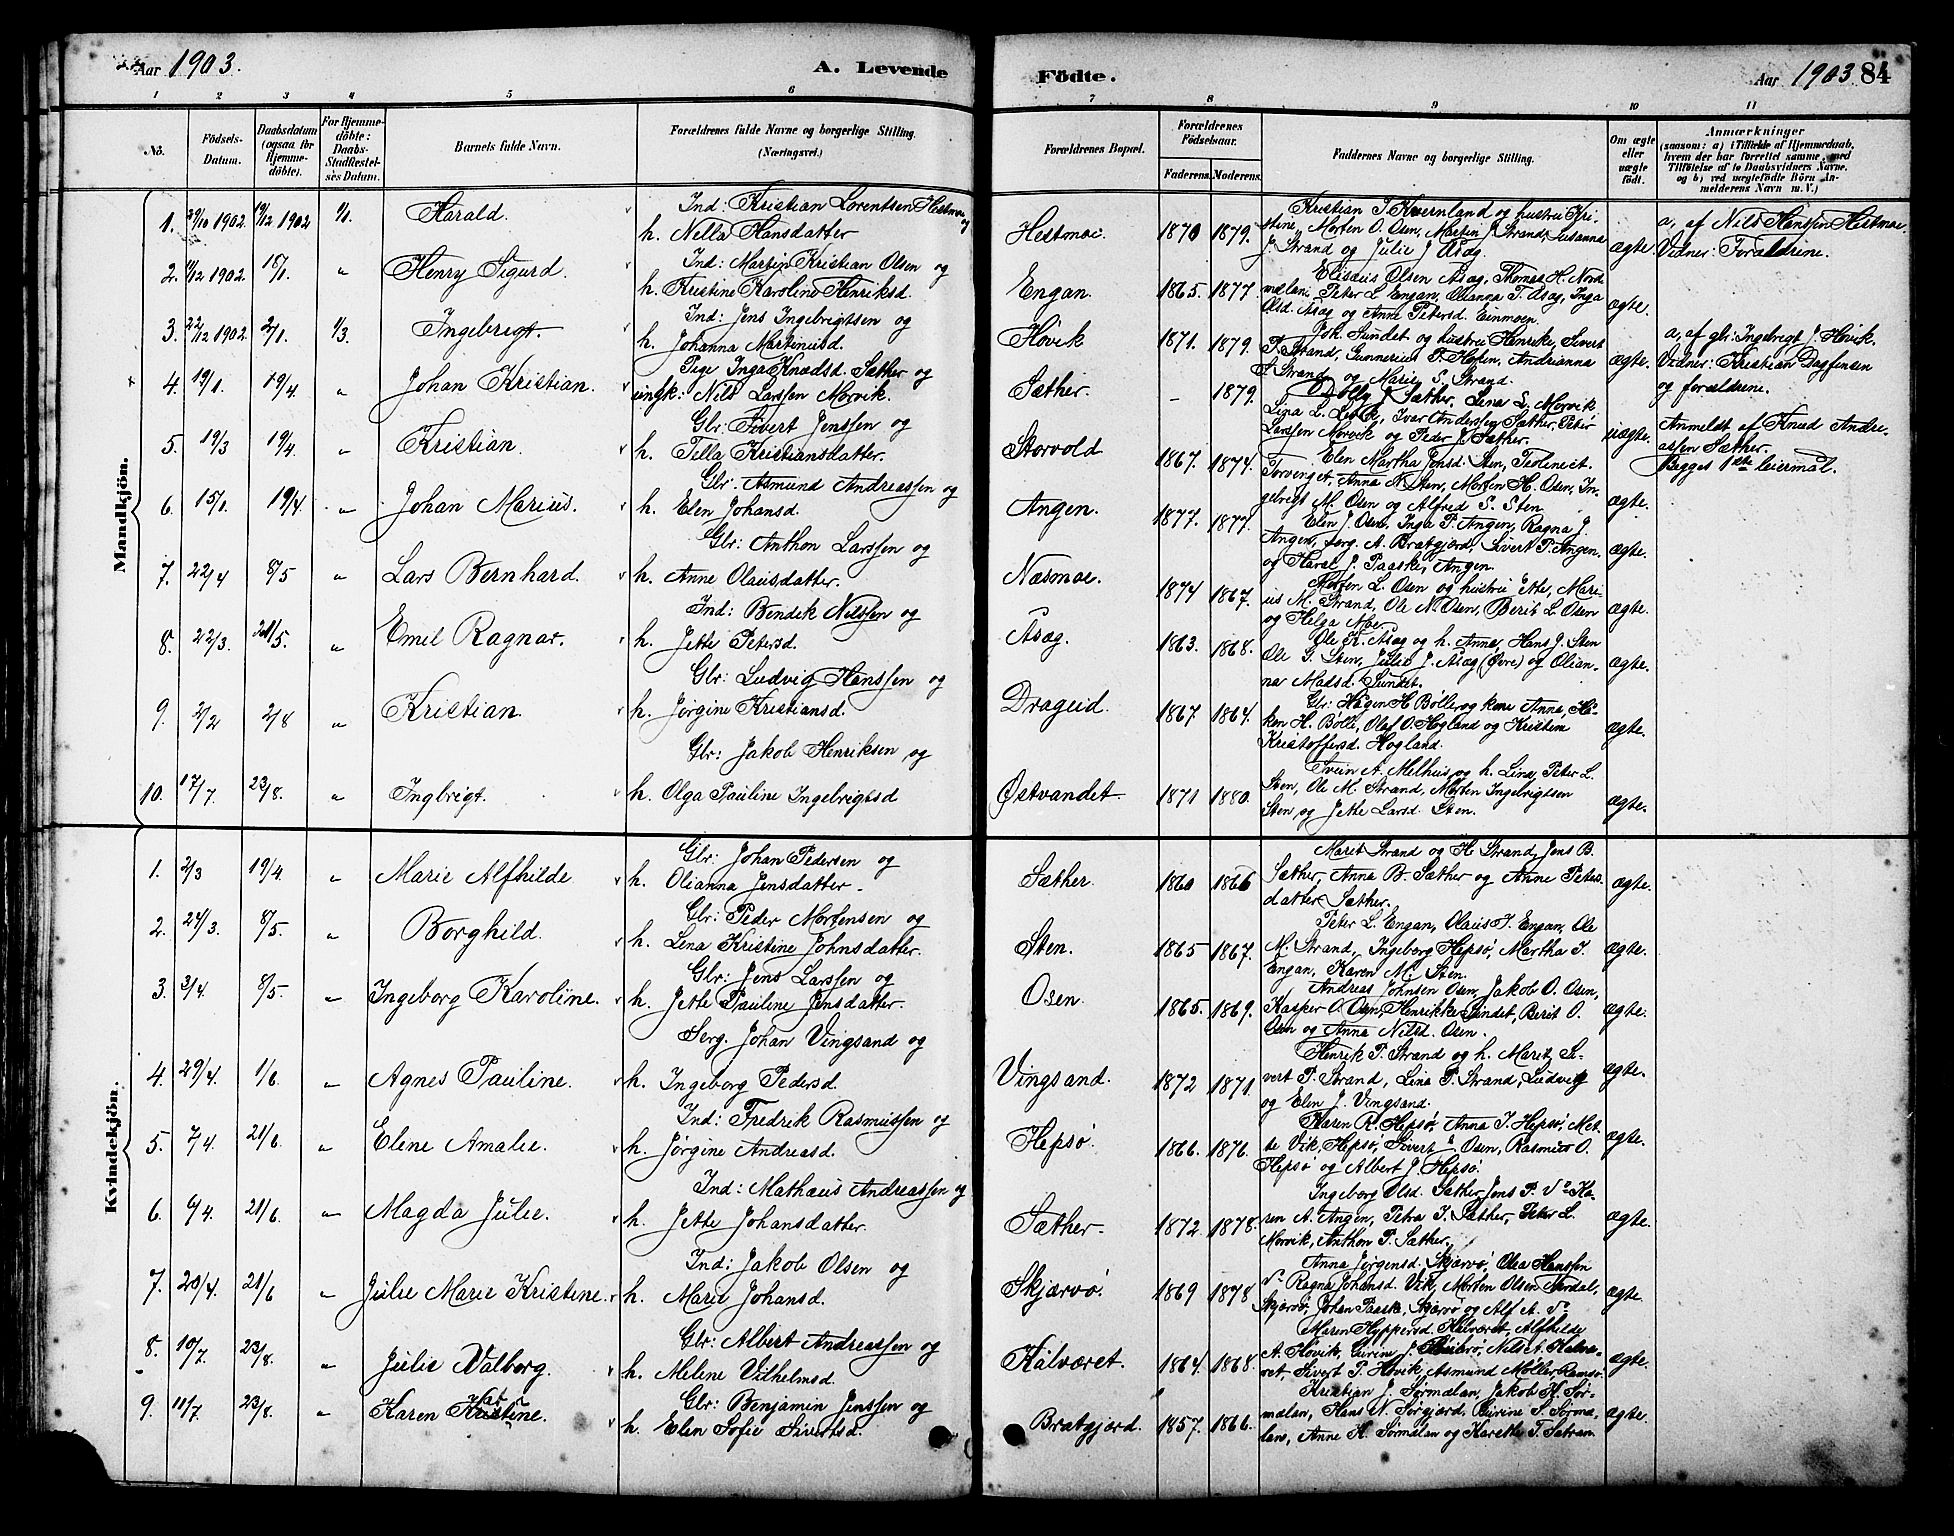 Aar 1903.
A. Levende
Födte.
Aar 1903. 84
1 2 3 4 5 6 7 8 9 10 11
No. Födsels-Datum. Daabsdatum (ogsaa for Hjemmedöbte). For Hjemmedöbte: Daabs-Stadfæstelses Datum. Barnets fulde Navn. Forældrenes fulde Navne og borgerlige Stilling. (Næringsvei.)
Forældrenes Bopæl. Forældrenes Födselsaar. Faderens. Moderens. Faddernes Navne og borgerlige Stilling. Om ægte eller uægte födt. Anmærkninger (saasom: a) i Tilfælde af Hjemmedaab, hvem der har forrettet samme, med Tilföielse af to Daabsvidners Navne, og b) ved uægtefödte Börn Anmelderens Navn m. V.)
Mandkjön.
1. 29/10 1902 19/12 1902 1/1. Harald. Ind: Kristian Lorentsen Hestmo og
h. Nella Hansdatter
Hestmoe. 1870 1879. ægte.
Kristian J. Kvernland og hustru Kri-
stine, Morten O. Osen, Martin J. Strand, Susanna
J. Strand og Julie J. Asag.
a, af Nils Hanssen Hestmoe.
Vidner: Forældrene.
2. 11/12 1902. 18/1. " Henry Sigurd. Ind: Martin Kristian Olsen og
h. Kristine Karoline Henriksd.
Engan. 1865. 1877. ægte.
Eliseus Olsen Asag, Thomas H. Nord
melan, Peter L. Engan, Olianna T. Asag, Inga
Olsd. Asag og Anne Petersd. Einmoen.
3. 22/12 1902. 2/1. 1/3. Ingebrigt. Ind: Jens Ingebrigtsen og
h. Johanna Martinusd.
Hovik 1871. 1879. ægte.
Joh. Sundet og hustru Henrikke, Sivert
P. Strand, Gunnerius P. Hofen, Andrianna
S. Strand og Marie S. Strand.
a, af gbr: Ingebrigt J. Høvik.
Vidner: Kristian Dagfinsen
og forældrene.
4. 19/1. 19/4. " Johan Kristian. Pige Inga Knudsd. Sæther og
ungk: Nils Larssen Morvik.
Sæther. - 1879. uægte.
Dolly J. Sæther, Lina L. Morvik
Lina L. Lelvik, Ivar Anderssen Sæther, Peter
Larssen Morvik og Peder J. Sæther.
Anmeldt af Knud Andre-
assen Sæther.
Begges 1ste leiermål.
5. 19/3 19/4. " Kristian. Gbr: Sivert Jenssen og
h. Tella Kristiansdatter.
Storvold 1867. 1874. ægte.
Elen Martha Jonsd. Sten,
Torvenget, Anna N. Sten, Morten H. Osen, In-
gebrigt M. Osen og Alfred S. Sten
6. 15/1. 19/4. " Johan Marius. Gbr: Asmund Andreassen og
h. Elen Johansd.
Angen. 1877. 1877. ægte.
Elen J. Osen, Inga P. Angen, Ragna J.
Angen, serg. A. Bratgjord, Sivert P. Angen.
og Haral J. Paaske, Angen.
7. 22/4 8/5 " Lars Bernhard. Gbr: Anthon Larssen og
h. Anne Olausdatter.
Næsmoe. 1874 1867. ægte.
Morten L. Osen og hustru Jette, Mari-
us M. Strand, Ole N. Osen, Berit L. Osen
og Helga Moe.
8. 22/3. 21/5. " Emil Ragnar. Ind: Bendik Nilssen og
h. Jette Petersd.
Asag. 1863. 1868. ægte.
Ole K. Asag og h. Anna, Hans J. Sten
Ole G. Sten, Julie J. Asag (Øvre) og Olian-
na Madsd. Sundet.
9. 2/2 2/8 " Kristian. Gbr: Ludvig Hanssen og
h. Jørgine Kristiansd.
Drageid. 1867 1864. ægte.
Gbr: Hagen H. Bølle og kone Anna, Hå-
ken H. Bølle, Olaf O. Hogland og Kristine
Kristoffersd. Hogland.
10. 17/7. 23/8. " Ingbrigt. Gbr: Jakob Henriksen og
h. Olga Pauline Ingebrigtsd
Østvandet 1871 1880. ægte.
Svein A. Melhus og h. Lina, Peter L.
Sten, Ole M. Strand, Morten Ingebrigtsen
Sten og Jette Larsd. Sten.
Kvindekjön.
1. 2/3 19/4. " Marie Alfhilde Gbr: Johan Pedersen og
h. Olianna Jensdatter.
Sæther. 1860 1866 ægte.
Marit Strand og H. Strand, Jens B.
Sæther, Anna B. Sæther og Anne Peters
datter Sæther.
2. 24/3. 8/5. " Borghild. Gbr: Peder Mortensen og
h. Lena Kristine Johnsdatter.
Sten. 1865 1867. ægte.
Peter L. Engan, Olaus J. Engan, Ole
M. Strand, Ingeborg Hepsø, Martha I.
Engan, Karen M. Sten.
3. 3/4. 8/5. " Ingeborg Karoline. Gbr: Jens Larssen og
h. Jette Pauline Jensdatter.
Osen. 1865. 1869. ægte.
Andreas Johnsen Osen, Jakob O. Osen,
Kasper O. Osen, Henrikke Sundet, Berit O.
Osen og Anna Nilsd. Osen.
4. 29/4. 1/6. " Agnes Pauline. Serg. Johan Vingsand og
h. Ingeborg Pedersd.
Vingsand. 1872 1871. ægte.
Henrik P. Strand og h. Marit, Si-
vert P. Strand, Lina P. Strand, Ludvig
og Elen J. Vingsand.
5. 7/4. 21/6. " Elene Amalie. Ind: Fredrik Rasmussen og
h. Jørgine Andreasd.
Hepsø. 1866. 1876. ægte.
Karen R. Hepsø, Anna J. Hepsø, Met-
te Vik, Hepsø, Sivert Osen, Rasmus O.
Hepsø og Albert J. Hepsø.
6. 9/4. 21/6. " Magda Julie. Ind: Mathæus Andreassen og
h. Jette Johansdatter.
Sæther. 1872 1878. ægte.
Ingeborg Olsd. Sæther, Jens P. Ka-
ren A. Angen, Petra J. Sæther, Peter L.
Morvik, Anthon P. Sæther.
7. 20/4. 21/6 " Julie Marie Kristine. Ind: Jakob Olsen og
h. Marie Johansd.
Skjærvø. 1869 1878 ægte.
Anna Jørgensd. Skjærvø, Olea Hanssen
Ragna Johansd. Vik, Morten Olsen Sandal,
Skjærvø, Johan Paaske, Skjærvø og Alf A.
8. 10/7. 23/8. " Julie Valborg. Gbr: Albert Andreassen og
h. Melene Vilhelmsd.
Halværet. 1864 1868. ægte.
Maren Hyppersd. Halværet, Alfhilde
A. Hovik, Gurine J. Nils A. Halvæ-
ret, Sivert P. Hovik, Asmund Møller, Ramsø.
9. 11/7. 23/8. " Karen Katrine. Gbr: Benjamin Jenssen og
h. Elen Sofie Sivertsd.
Bratgjærd. 1857. 1866. ægte.
Kristian J. Sørmælan, Jakob H. Sør-
mælan, Hans N. Sørgjærd, Gurine S. Sørmæ,
lan, Anne H. Sørmælan og Karethe T. Sætran